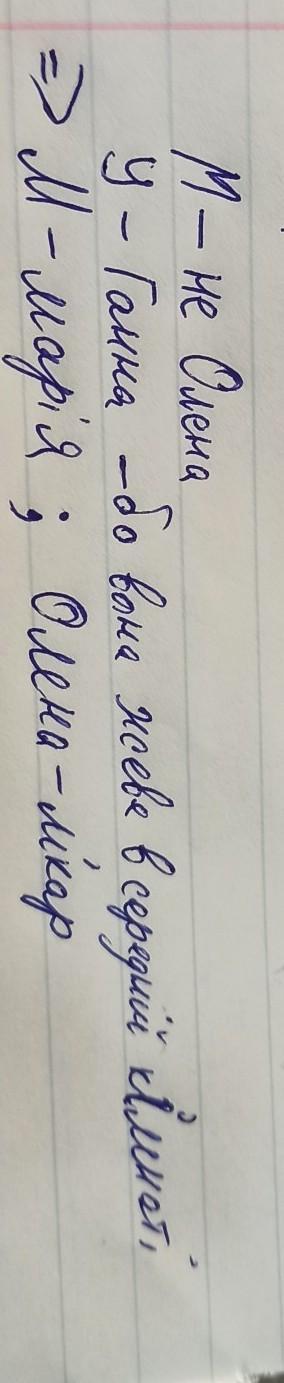 М – не Олена
У – Ганна – бо вона живе в середній кімнаті,
=> М – Марія ; Олена – лікар